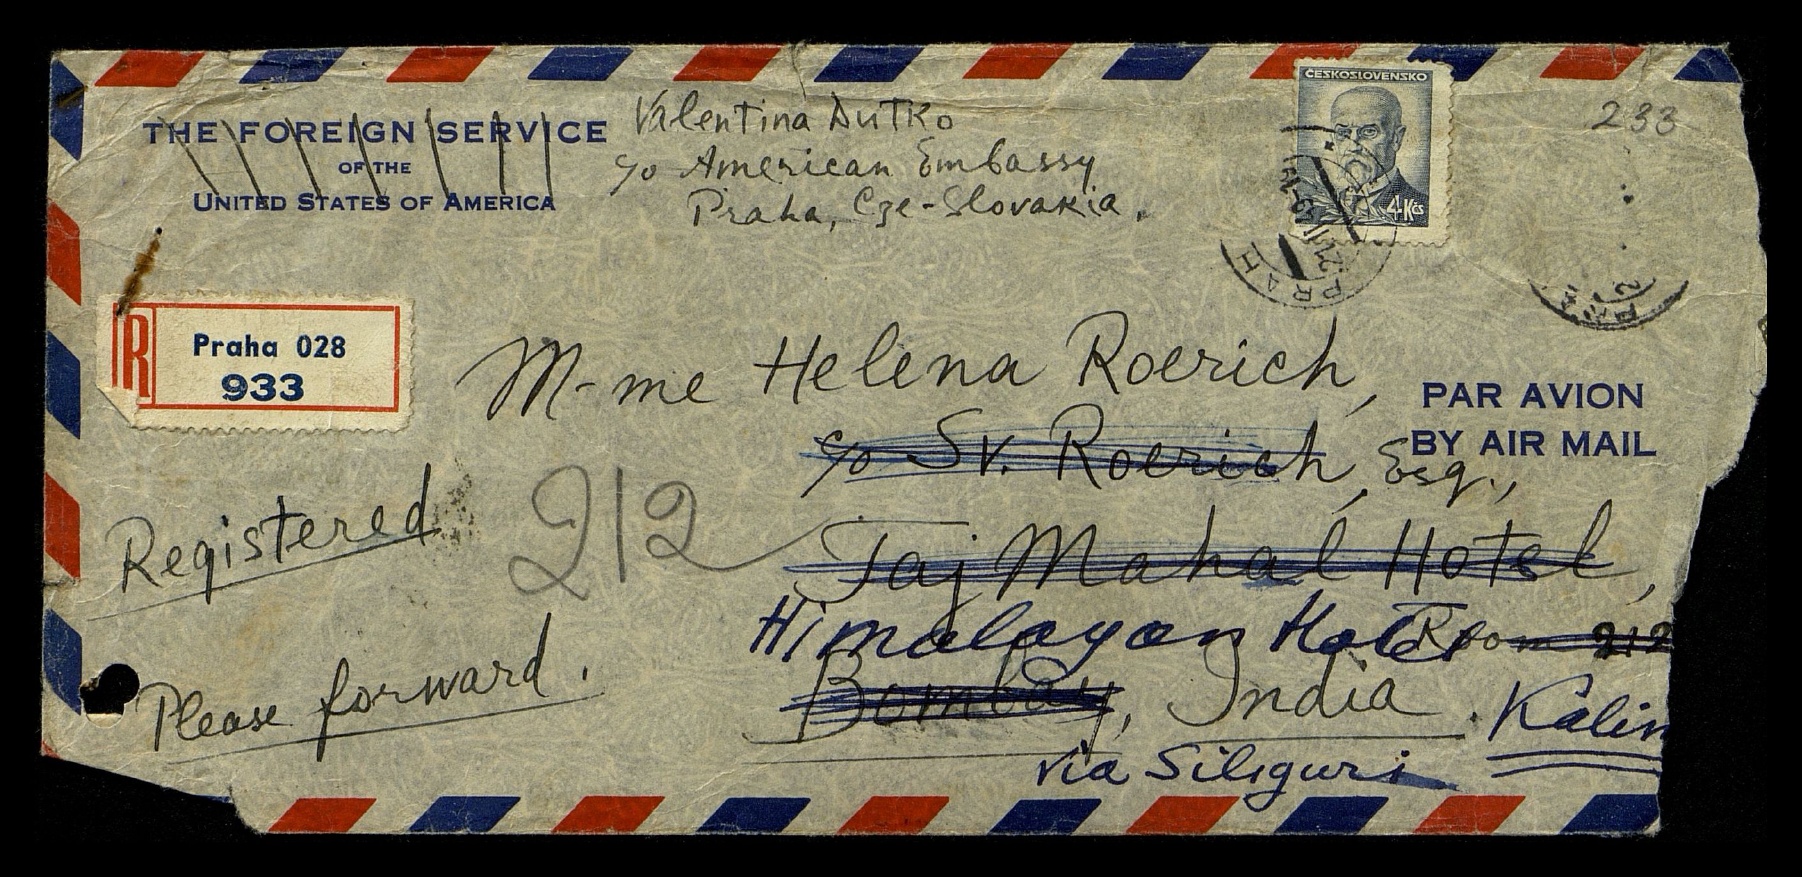 THE FOREIGN SERVICE
OF THE
UNITED STATES OF AMERICA
Valentina Dutko
c/o American Embassy
Praha, Cze-Slovakia.
ČESKOSLOVENSKO
4 Kčs
PRAH
233
R
Praha 028
933
M-me Helena Roerich,
c/o Sv. Roerich, Esq.,
PAR AVION
BY AIR MAIL
Registered
212
Taj Mahal Hotel,
Himalayan Hotel
Room 212
Bombay, India.
Kalim
Please forward.
via Siliguri